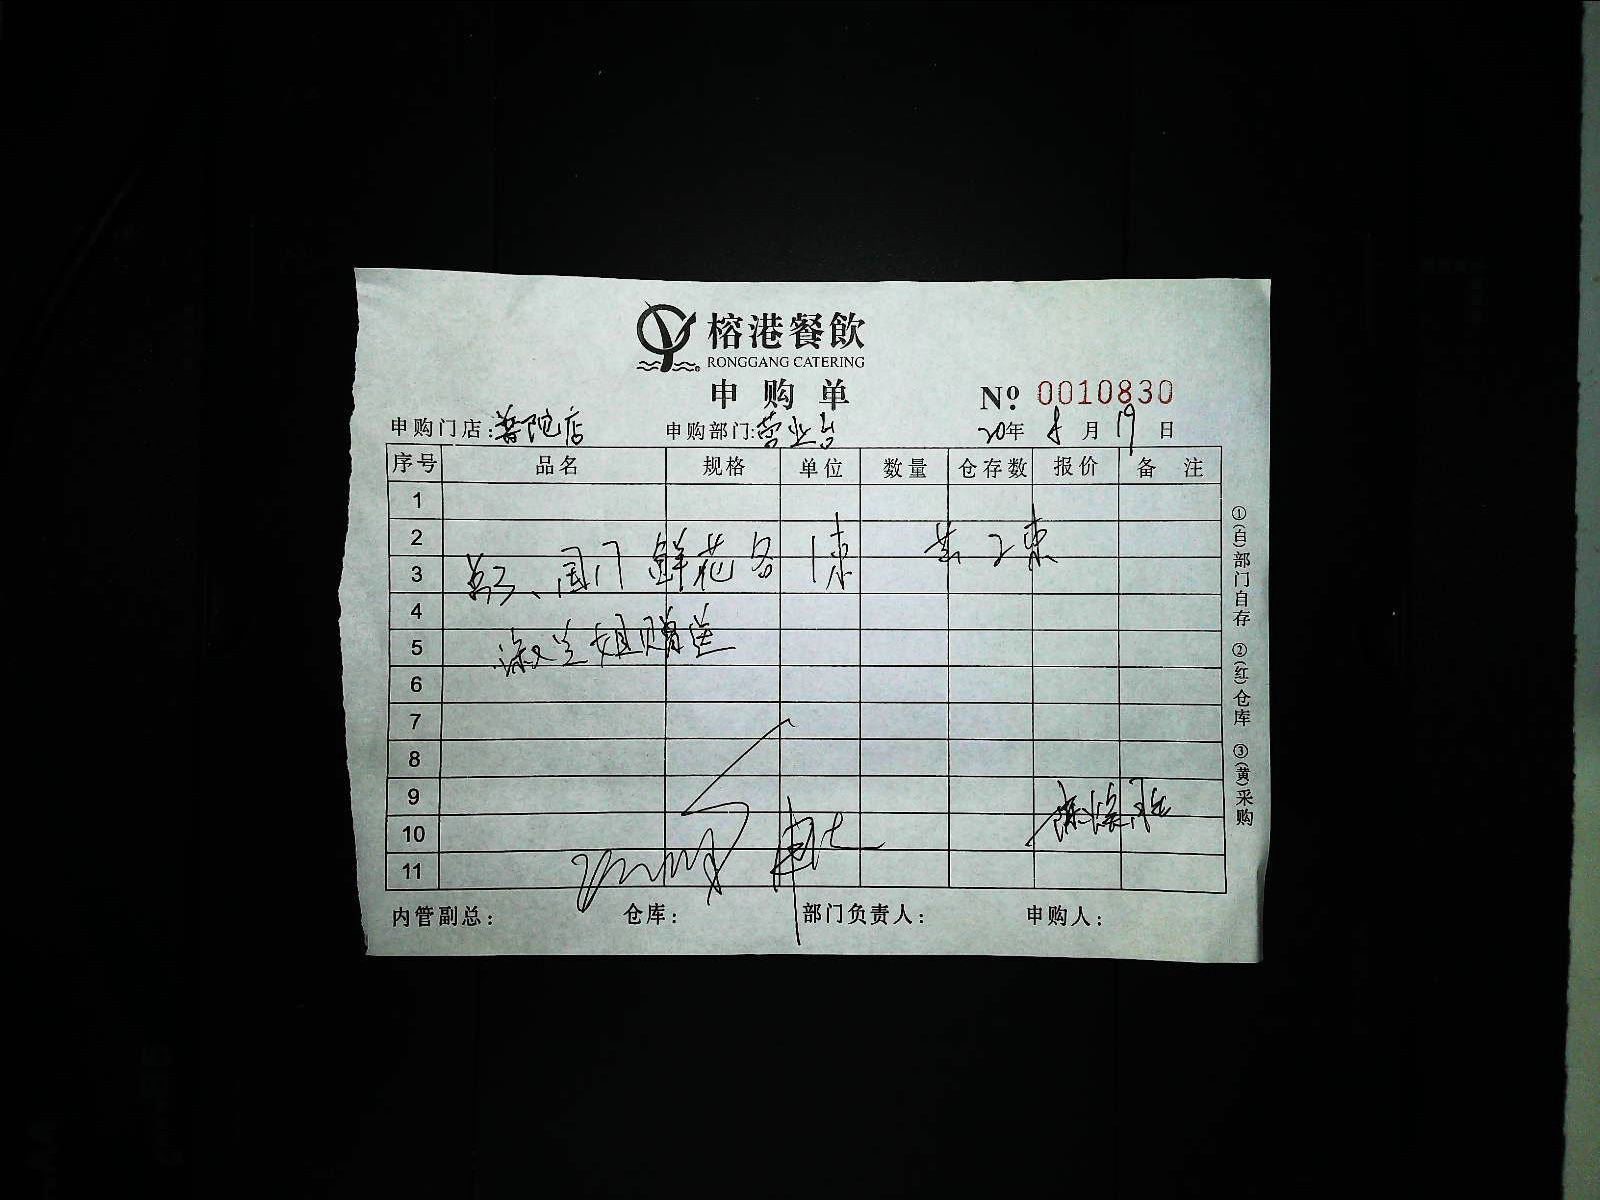 榕港餐飲
RONGGANG CATERING
申购单
Nº 0010830
申购门店:普陀店 申购部门:营业台 20年 8月 19日
序号 品名 规格 单位 数量 仓存数 报价 备注
1
2
3 、周门 鲜花各1束 共2束
4
5 淑兰姐赠送
6
7
8
9
10
11
内管副总: 仓库: 部门负责人: 申购人:
①(白)部门自存 ②(红)仓库 ③(黄)采购